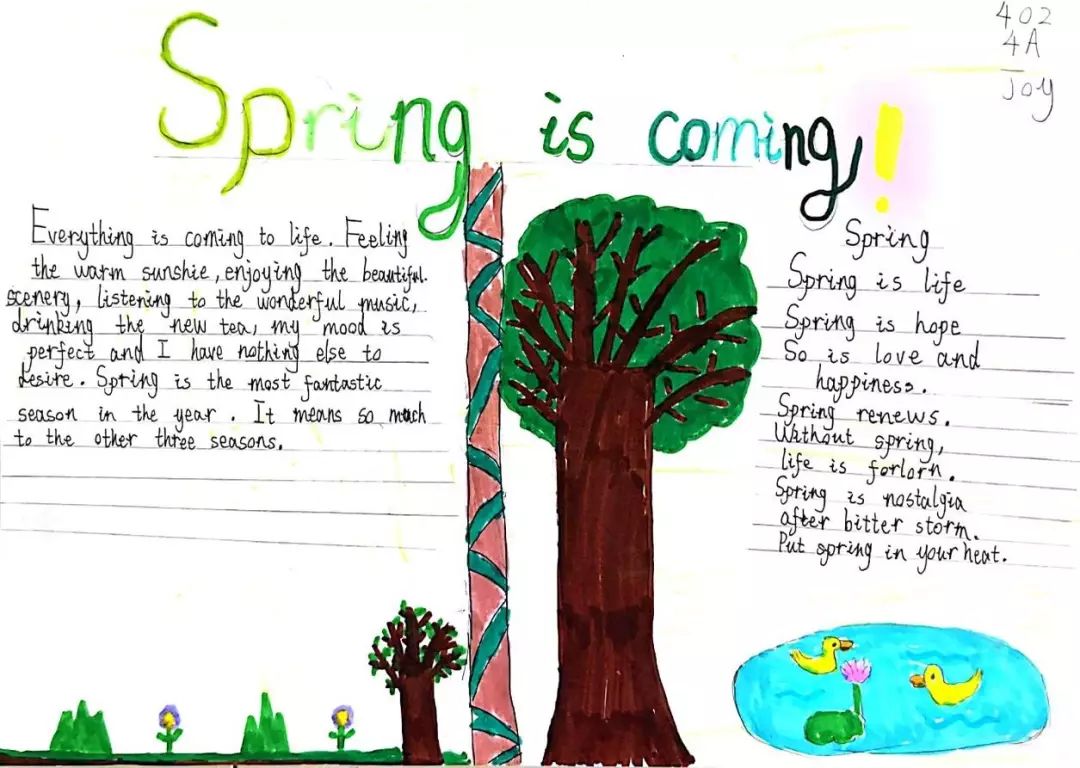 402
4A
Joy
Spring is coming!
Everything is coming to life. Feeling
the warm sunshie, enjoying the beautiful
scenery, listening to the wonderful music,
drinking the new tea, my mood is
perfect and I have nothing else to
desire. Spring is the most fantastic
season in the year. It means so much
to the other three seasons.
Spring
Spring is life
Spring is hope
So is love and
happiness.
Spring renews.
Without spring,
life is forlorn.
Spring is nostalgia
after bitter storm.
Put spring in your heat.